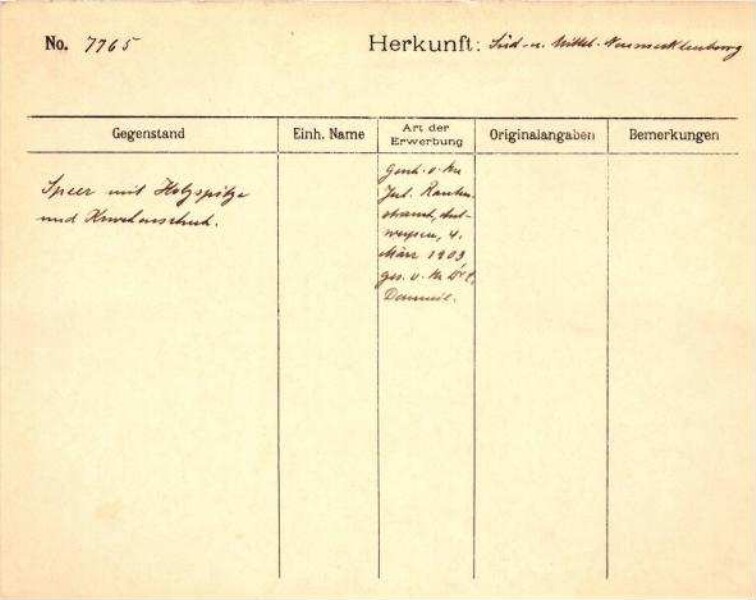 No. 7765
Herkunft: Süd- u. Mittel-Neumecklenburg
Gegenstand
Einh. Name
Art der
Erwerbung
Originalangaben
Bemerkungen
Speer mit Holzspitze
und Knochenschuh.
Gesch. v. Hn
Jul. Rauten-
strauch, Ant-
werpen, 4.
März 1909
ges. v. Hn